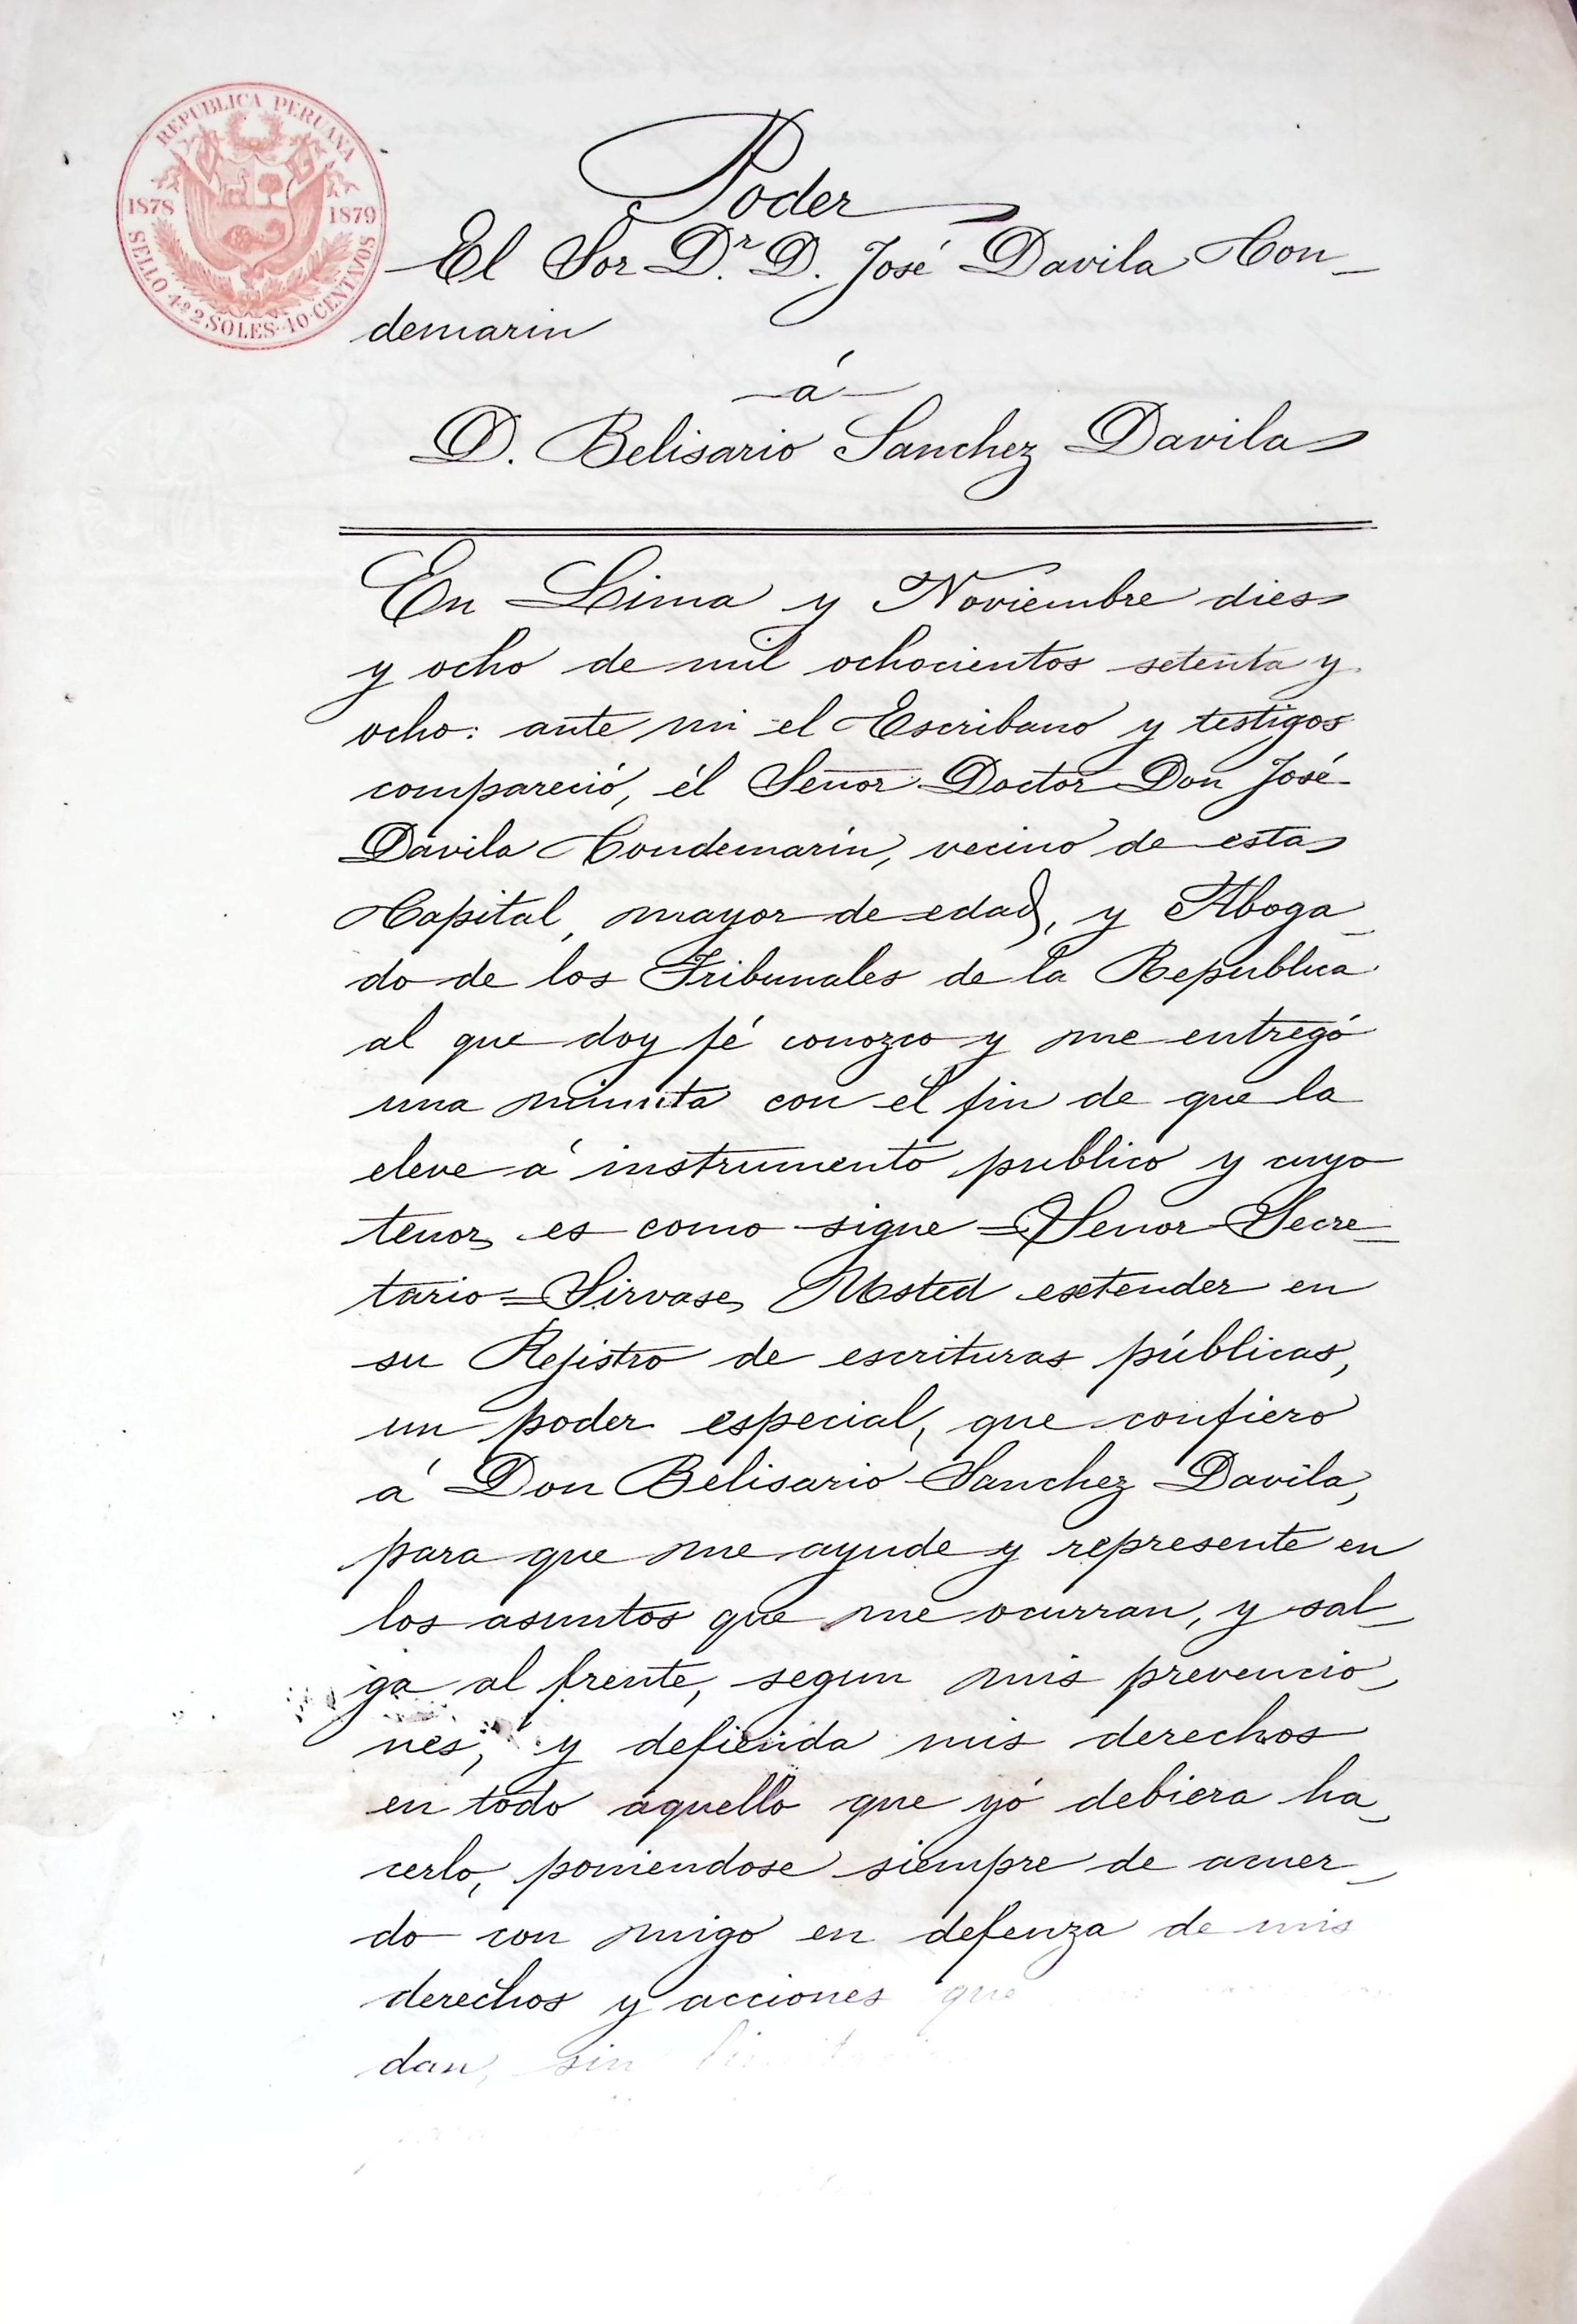 REPUBLICA PERUANA
1878 1879
SELLO 4.º 2 SOLES. 10 CENTAVOS
Poder
El Sor D.r D. José Davila Con_
demarin
á
D. Belisario Sanchez Davila
En Lima y Noviembre dies
y ocho de mil ochocientos setenta y
ocho: ante mi el Escribano y testigos
compareció, él Señor Doctor Don José
Davila Condemarín, vecino de esta
Capital, mayor de edad, y Aboga_
do de los Tribunales de la Republica
al que doy fé conozco y me entregó
una minuta con el fin de que la
eleve á instrumento publico y cuyo
tenor es como sigue = Senor Secre_
tario = Sirvase Usted extender en
su Rejistro de escrituras públicas,
un poder especial, que confiero
á Don Belisario Sanchez Davila,
para que me ayude y represente en
los asuntos que me ocurran, y sal_
ga al frente, segun mis prevencio_
nes, y defienda mis derechos
en todo aquello que yó debiera ha_
cerlo, poniendose siempre de acuer_
do con migo en defenza de mis
derechos y acciones que
dan, sin